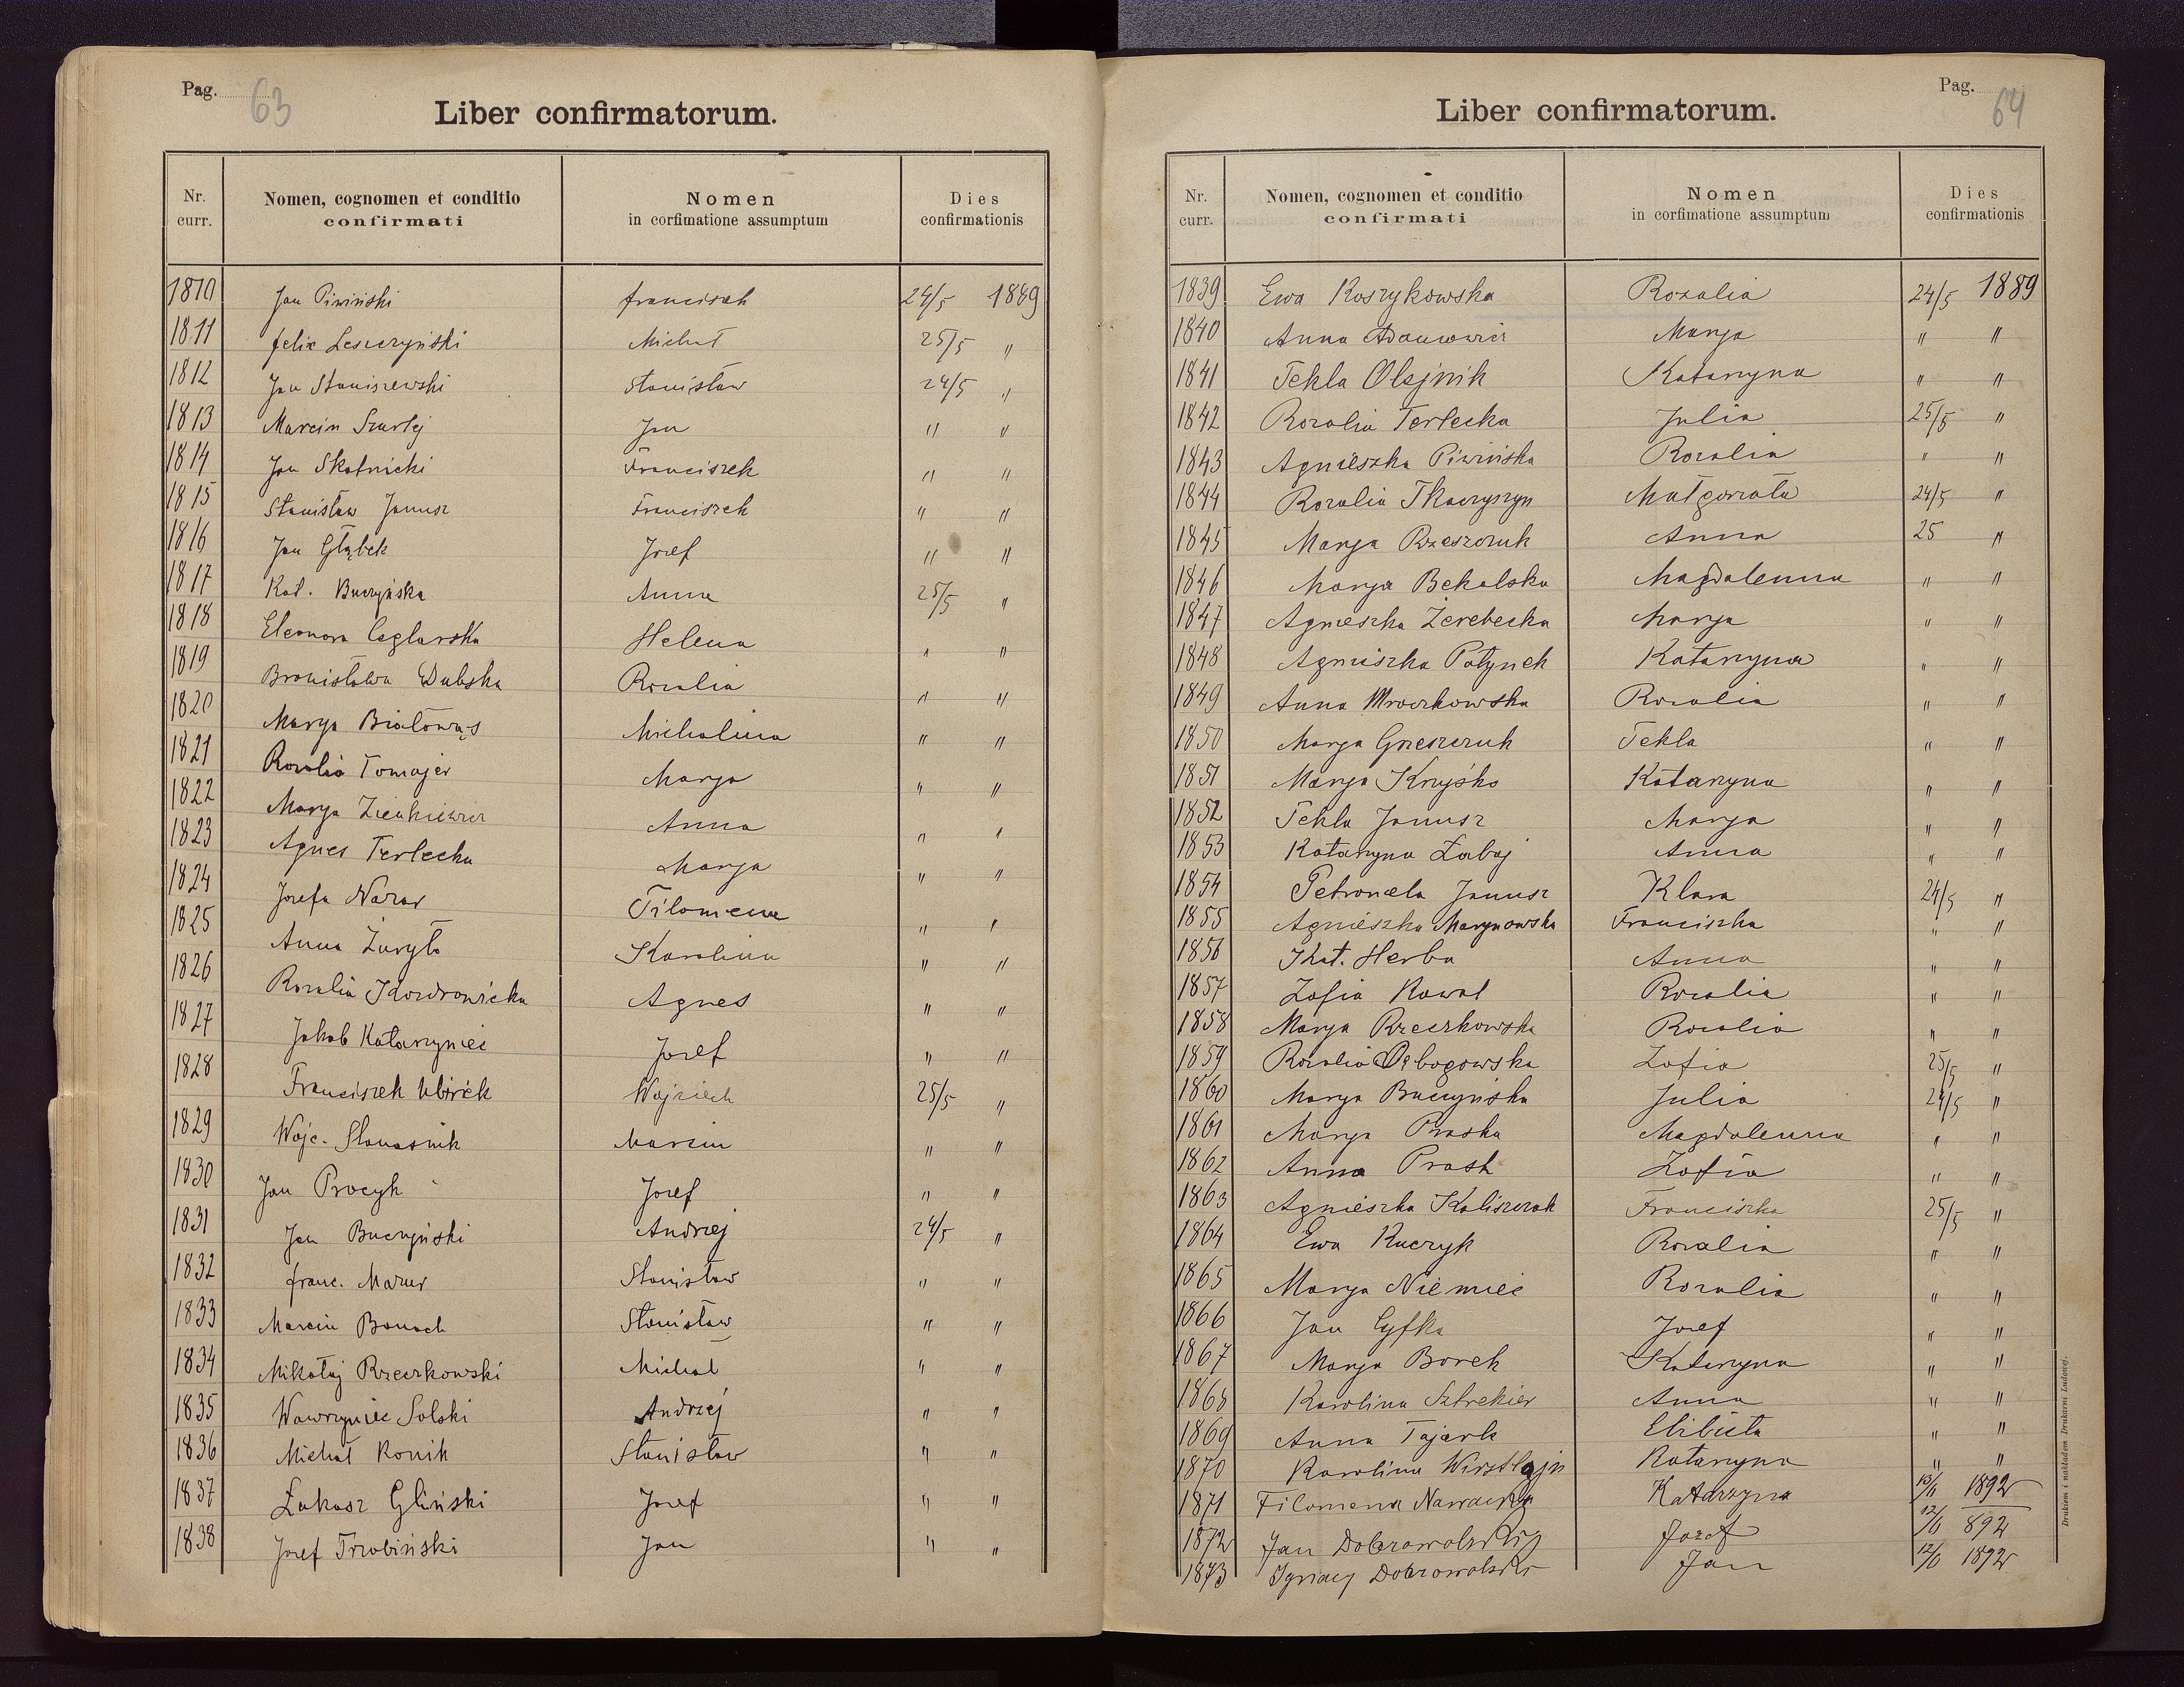 Pag. 63
Liber confirmatorum.
Nr. curr. Nomen, cognomen et conditio confirmati Nomen in corfimatione assumptum Dies confirmationis
1810 Jan Piwiński franciszek 24/5 1889
1811 felix Leszczyński Michał 25/5 "
1812 Jan Staniszewski Stanisław 24/5 "
1813 Marcin Szurlej Jan " "
1814 Jan Skotnicki Franciszek " "
1815 Stanisław Janusz Franciszek " "
1816 Jan Głąbek Jozef " "
1817 Kat. Buczyńska Anna 25/5 "
1818 Eleonora Ceglarska Helena " "
1819 Bronisława Dubska Rozalia " "
1820 Marya Białowąs Michalina " "
1821 Rozalia Tomajer Marya " "
1822 Marya Zienkiewicz Anna " "
1823 Agnes Terlecka Marya " "
1824 Jozefa Nazar Filomena " "
1825 Anna Żuryło Karolina " "
1826 Rozalia Kozdrowicka Agnes " "
1827 Jakob Katarzyniec Jozef " "
1828 Franciszek Wojciech 25/5 "
1829 Wojc. Słonasnik Marcin " "
1830 Jan Procyk Jozef " "
1831 Jan Buczyński Andrzej 24/5 "
1832 franc. Mazur Stanisław " "
1833 Marcin Banach Stanisław " "
1834 Mikołaj Rzeczkowski Michał " "
1835 Wawrzyniec Solski Andrzej " "
1836 Michał Konik Stanisław " "
1837 Łukasz Gliński Jozef " "
1838 Jozef Trzobiński Jan " "
Pag. 64
Liber confirmatorum.
Nr. curr. Nomen, cognomen et conditio confirmati Nomen in corfimatione assumptum Dies confirmationis
1839 Ewa Koszykowska Rozalia 24/5 1889
1840 Anna Adamowicz Marya " "
1841 Tekla Olejnik Katarzyna " "
1842 Rozalia Terlecka Julia 25/5 "
1843 Agnieszka Piwińska Rozalia " "
1844 Rozalia Tkaczyszyn Małgorzata 24/5 "
1845 Marya Rzeszczuk Anna 25 "
1846 Marya Bekalska Magdalenna " "
1847 Agnieszka Żerebecka Marya " "
1848 Agniszka Połynek Katarzyna " "
1849 Anna Mroczkowska Rozalia " "
1850 Marya Grzeszczuk Tekla " "
1851 Marya Kryśko Katarzyna " "
1852 Tekla Janusz Marya " "
1853 Katarzyna Żabaj Anna " "
1854 Petronela Janusz Klara 24/5 "
1855 Agnieszka Marynowska Franciszka " "
1856 Kat. Herba Anna " "
1857 Zofia Kowal Rozalia " "
1858 Marya Rzeczkowska Rozalia " "
1859 Rozalia Dębogowska Zofia 25/5 "
1860 Marya Buczyńska Julia 24/5 "
1861 Marya Praska Magdalenna " "
1862 Anna Prask Zofia " "
1863 Agnieszka Kaliszczak Franciszka 25/5 "
1864 Ewa Kuczyk Rozalia " "
1865 Marya Niemiec Rozalia " "
1866 Jan Cyfka Jozef " "
1867 Marya Borek Katarzyna " "
1868 Karolina Sztrekier Anna " "
1869 Anna Tajerle Elzbieta " "
1870 Karolina Wirsztlajn Katarzyna " "
1871 Filomena Katarzyna 13/6 1892
1872 Jan Dobrowolski Jozef 12/6 892
1873 Ignacy Dobrowolski Jan 12/6 1892
Drukiem i nakładem Drukarni Ludowej.